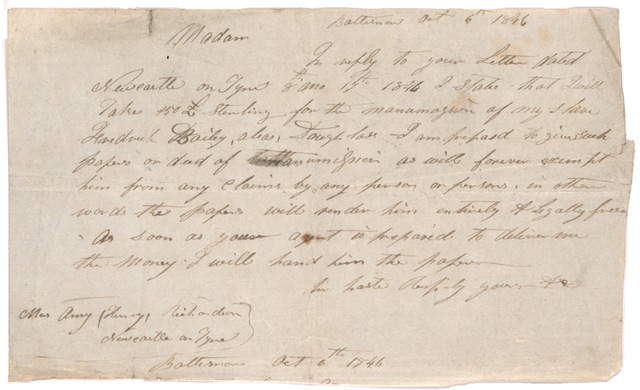 Baltimore Oct 6th 1846
Madam
In reply to your Letter dated
Newcastle on Tyne 8 mo 15th 1846 I state that I will
take 150£ Sterling for the manumission of my slave
Fredrick Bailey, alias Douglass - I am prepared to give such
papers or deed of Manumission as will forever exempt
him from any claims by any person or persons. in other
words the papers will render him entirely & Legally free
As soon as your agent is prepared to deliver me
the money I will hand him the papers
In haste Respy yours &c
Mrs Amy (Henry) Richardson
Newcastle on Tyne
Baltimore Oct 6th 1846